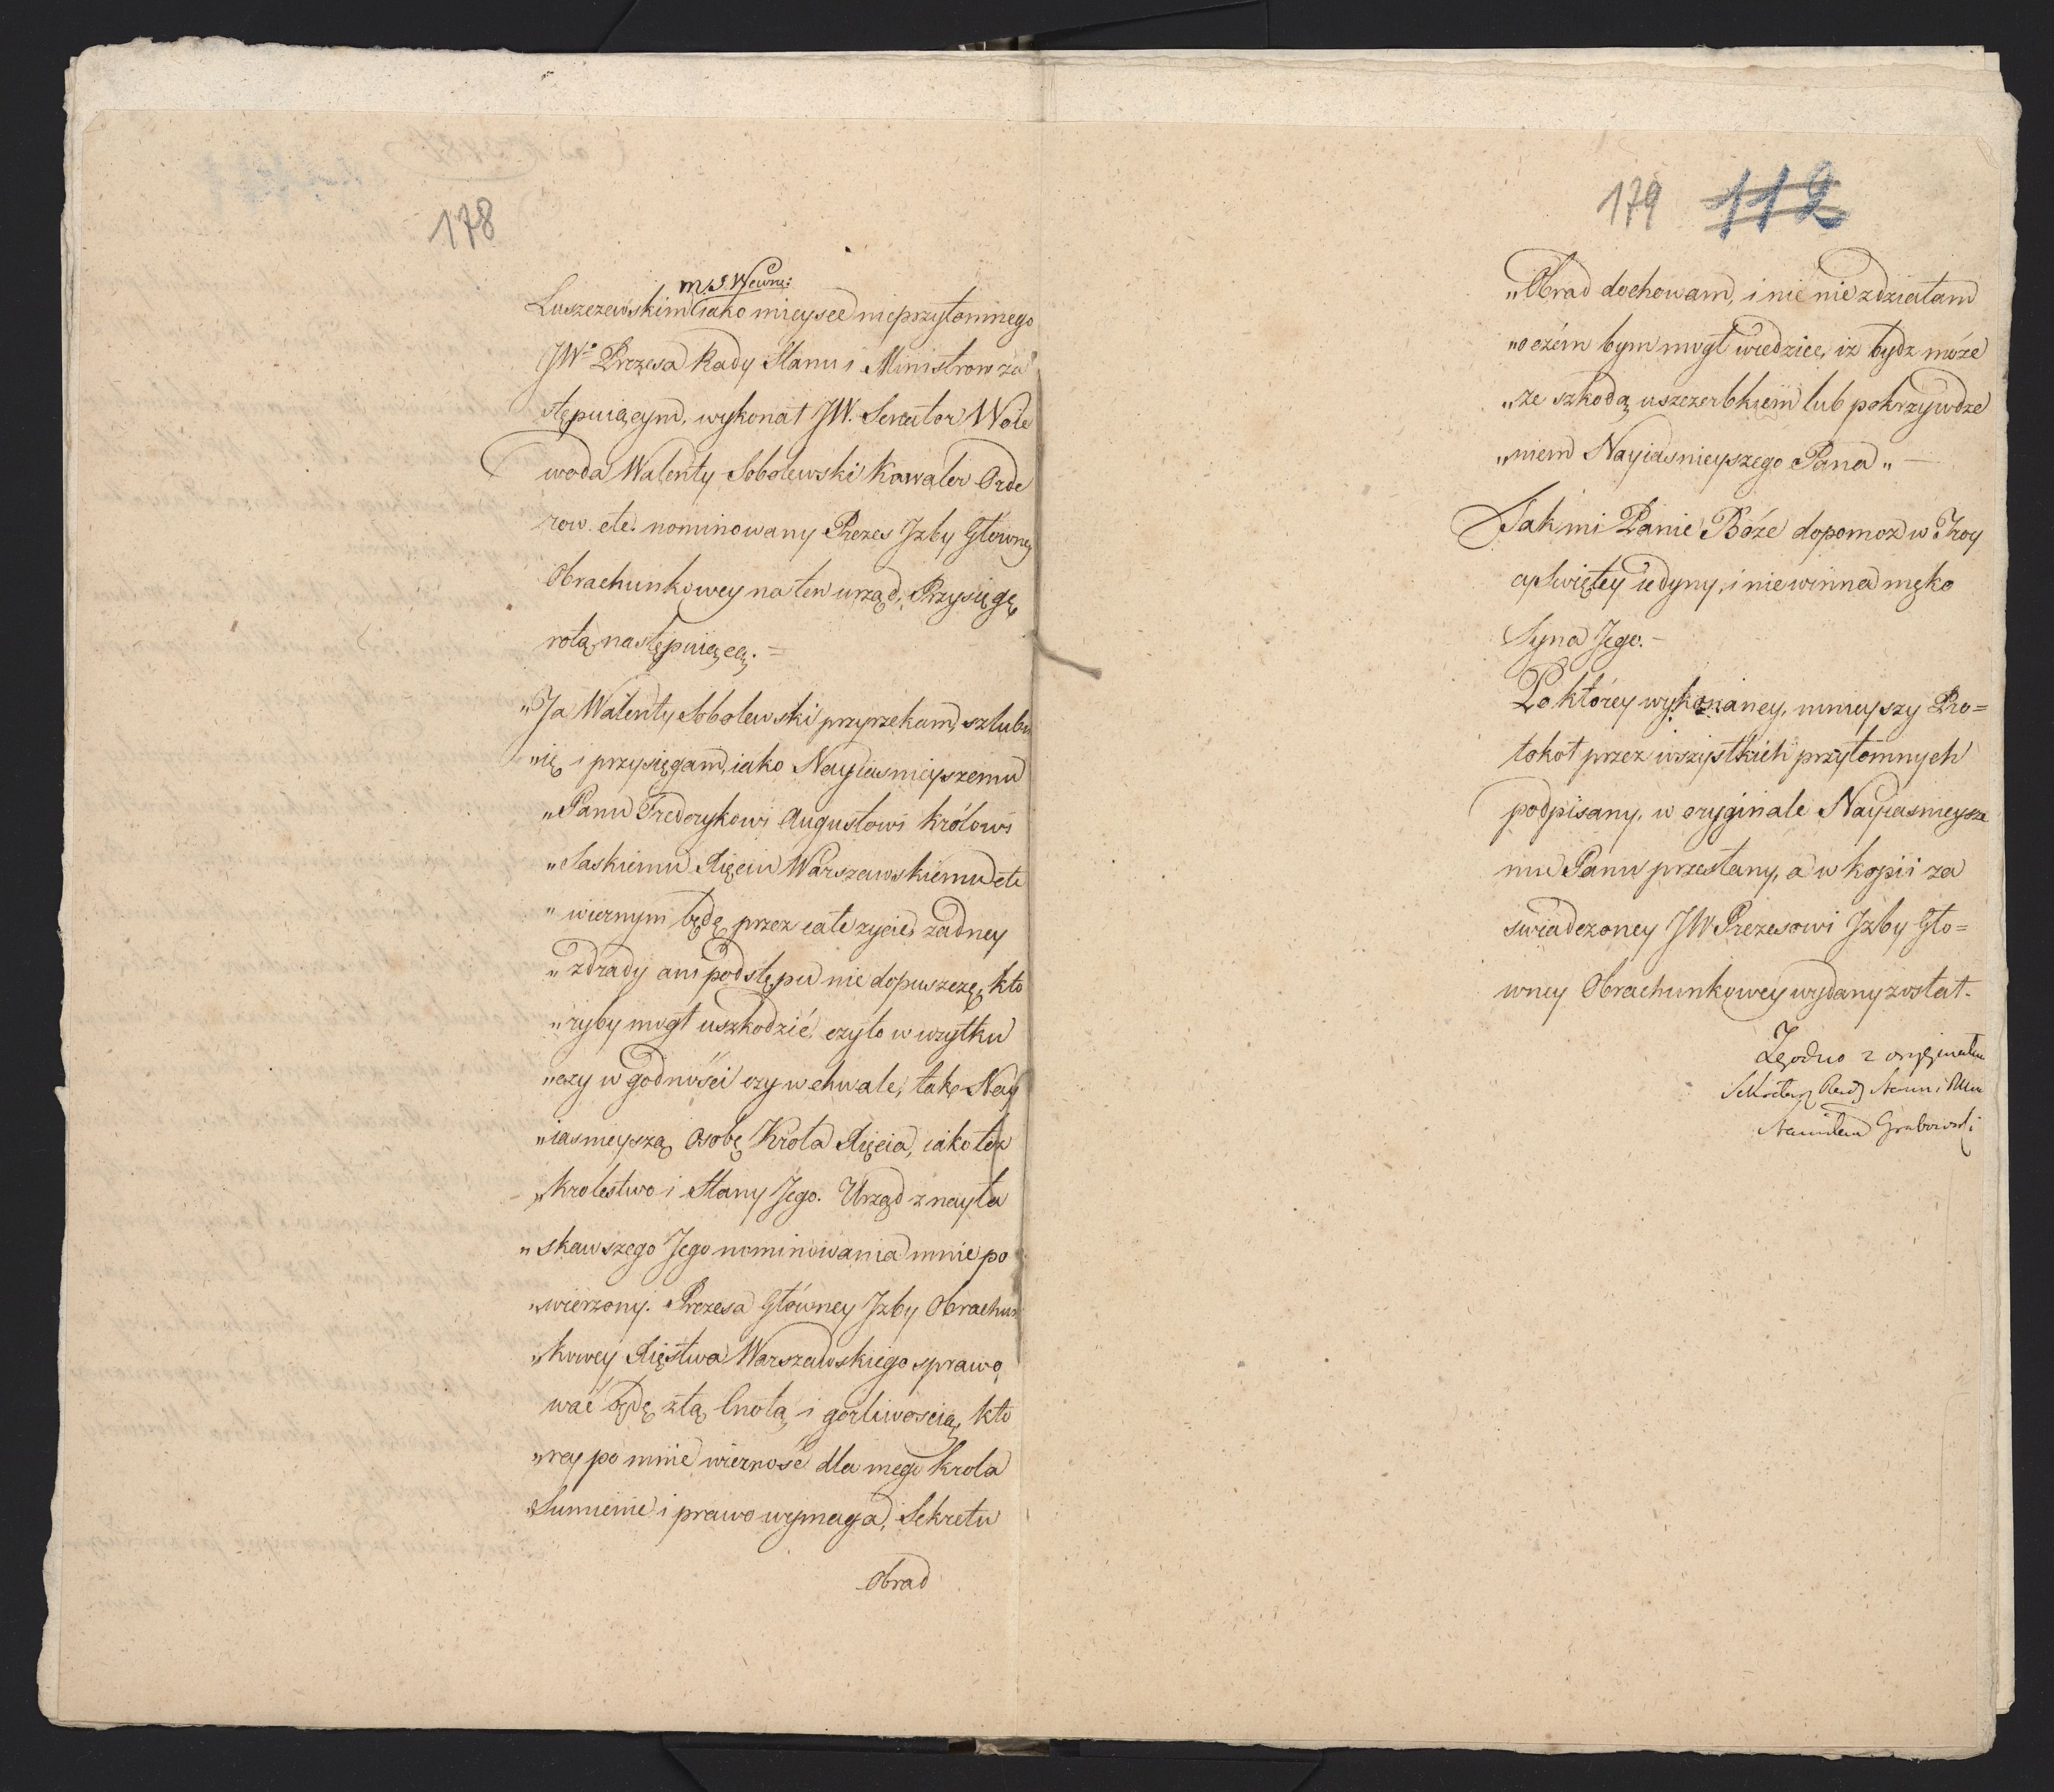 178
M. S. Wewn:
Luszczewskim iako mieysce nieprzytomnego
JWo Prezesa Rady Stanu i Ministrow za
stępuiącym, wykonał JW. Senator Woie
woda Walenty Sobolewski Kawaler Orde
row etc. nominowany Prezes Izby Główney
Obrachunkowey na ten urząd, Przysięgę
rotą następuiącą. =
"Ja Walenty Sobolewski przyrzekam, szlubu
"ię i przysięgam, iako Nayiasnieyszemu
"Panu Frederykowi Augustowi Królowi
"Saskiemu Xięciu Warszawskiemu etc
"wiernym będę przez całe zycie, zadney
"zdrady ani podstępu nie dopuszczę, kto
"ryby mogł uszkodzić, czyto w uzytku
"czy w godności czy w chwale, tak Nay
"iasnieyszą Osobę Krola Xięcia, iako tez
"Krolestwo i Stany Jego. Urząd z nayła
"skawszego Jego nominowania mnie po
"wierzony. Prezesa Główney Izby Obrachun
"kowey Xięstwa Warszawskiego sprawo
wać będę ztą Cnotą i gorliwoscią, kto
"rey po mnie wierność dla mego Krola
"Sumienie i prawo wymaga, Sekretu
Obrad
179 112
"Obrad dochowam, i nic nie zdziałam
"o czém bym mogł wiedziec, iz bydz może
"ze szkodą uszczerbkiem lub pokrzywdze
"niem Nayiasnieyszego Pana" —
Tak mi Panie Boże dopomoz w Troy
cy Swiętey iedyny, i niewinna męko
Syna Jego. —
Po którey wykonaney, ninieyszy Pro=
tokoł przez wszystkich przytomnych
podpisany, w oryginale Nayiasnieysze
mu Panu przesłany, a w kopii za
swiadczoney JW Prezesowi Izby Gło=
wney Obrachunkowey wydany został.
Zgodno z oryginałem
Sekretarz Rady Stanu i Min
Stanisław Grabowski